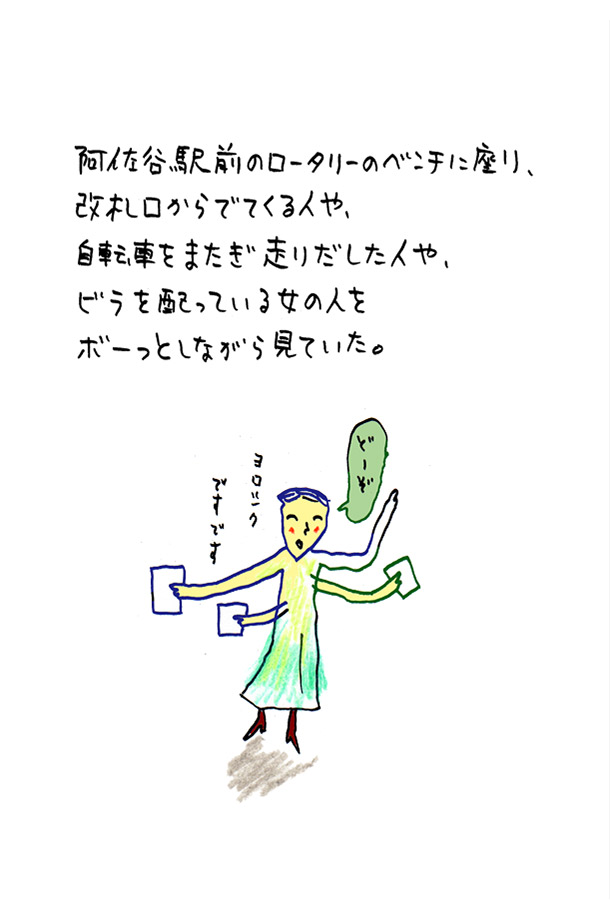 阿佐谷駅前のロータリーのベンチに座り、
改札口からでてくる人や、
自転車をまたぎ走りだした人や、
ビラを配っている女の人を
ボーっとしながら見ていた。
どーぞ
ヨロシク
ですです